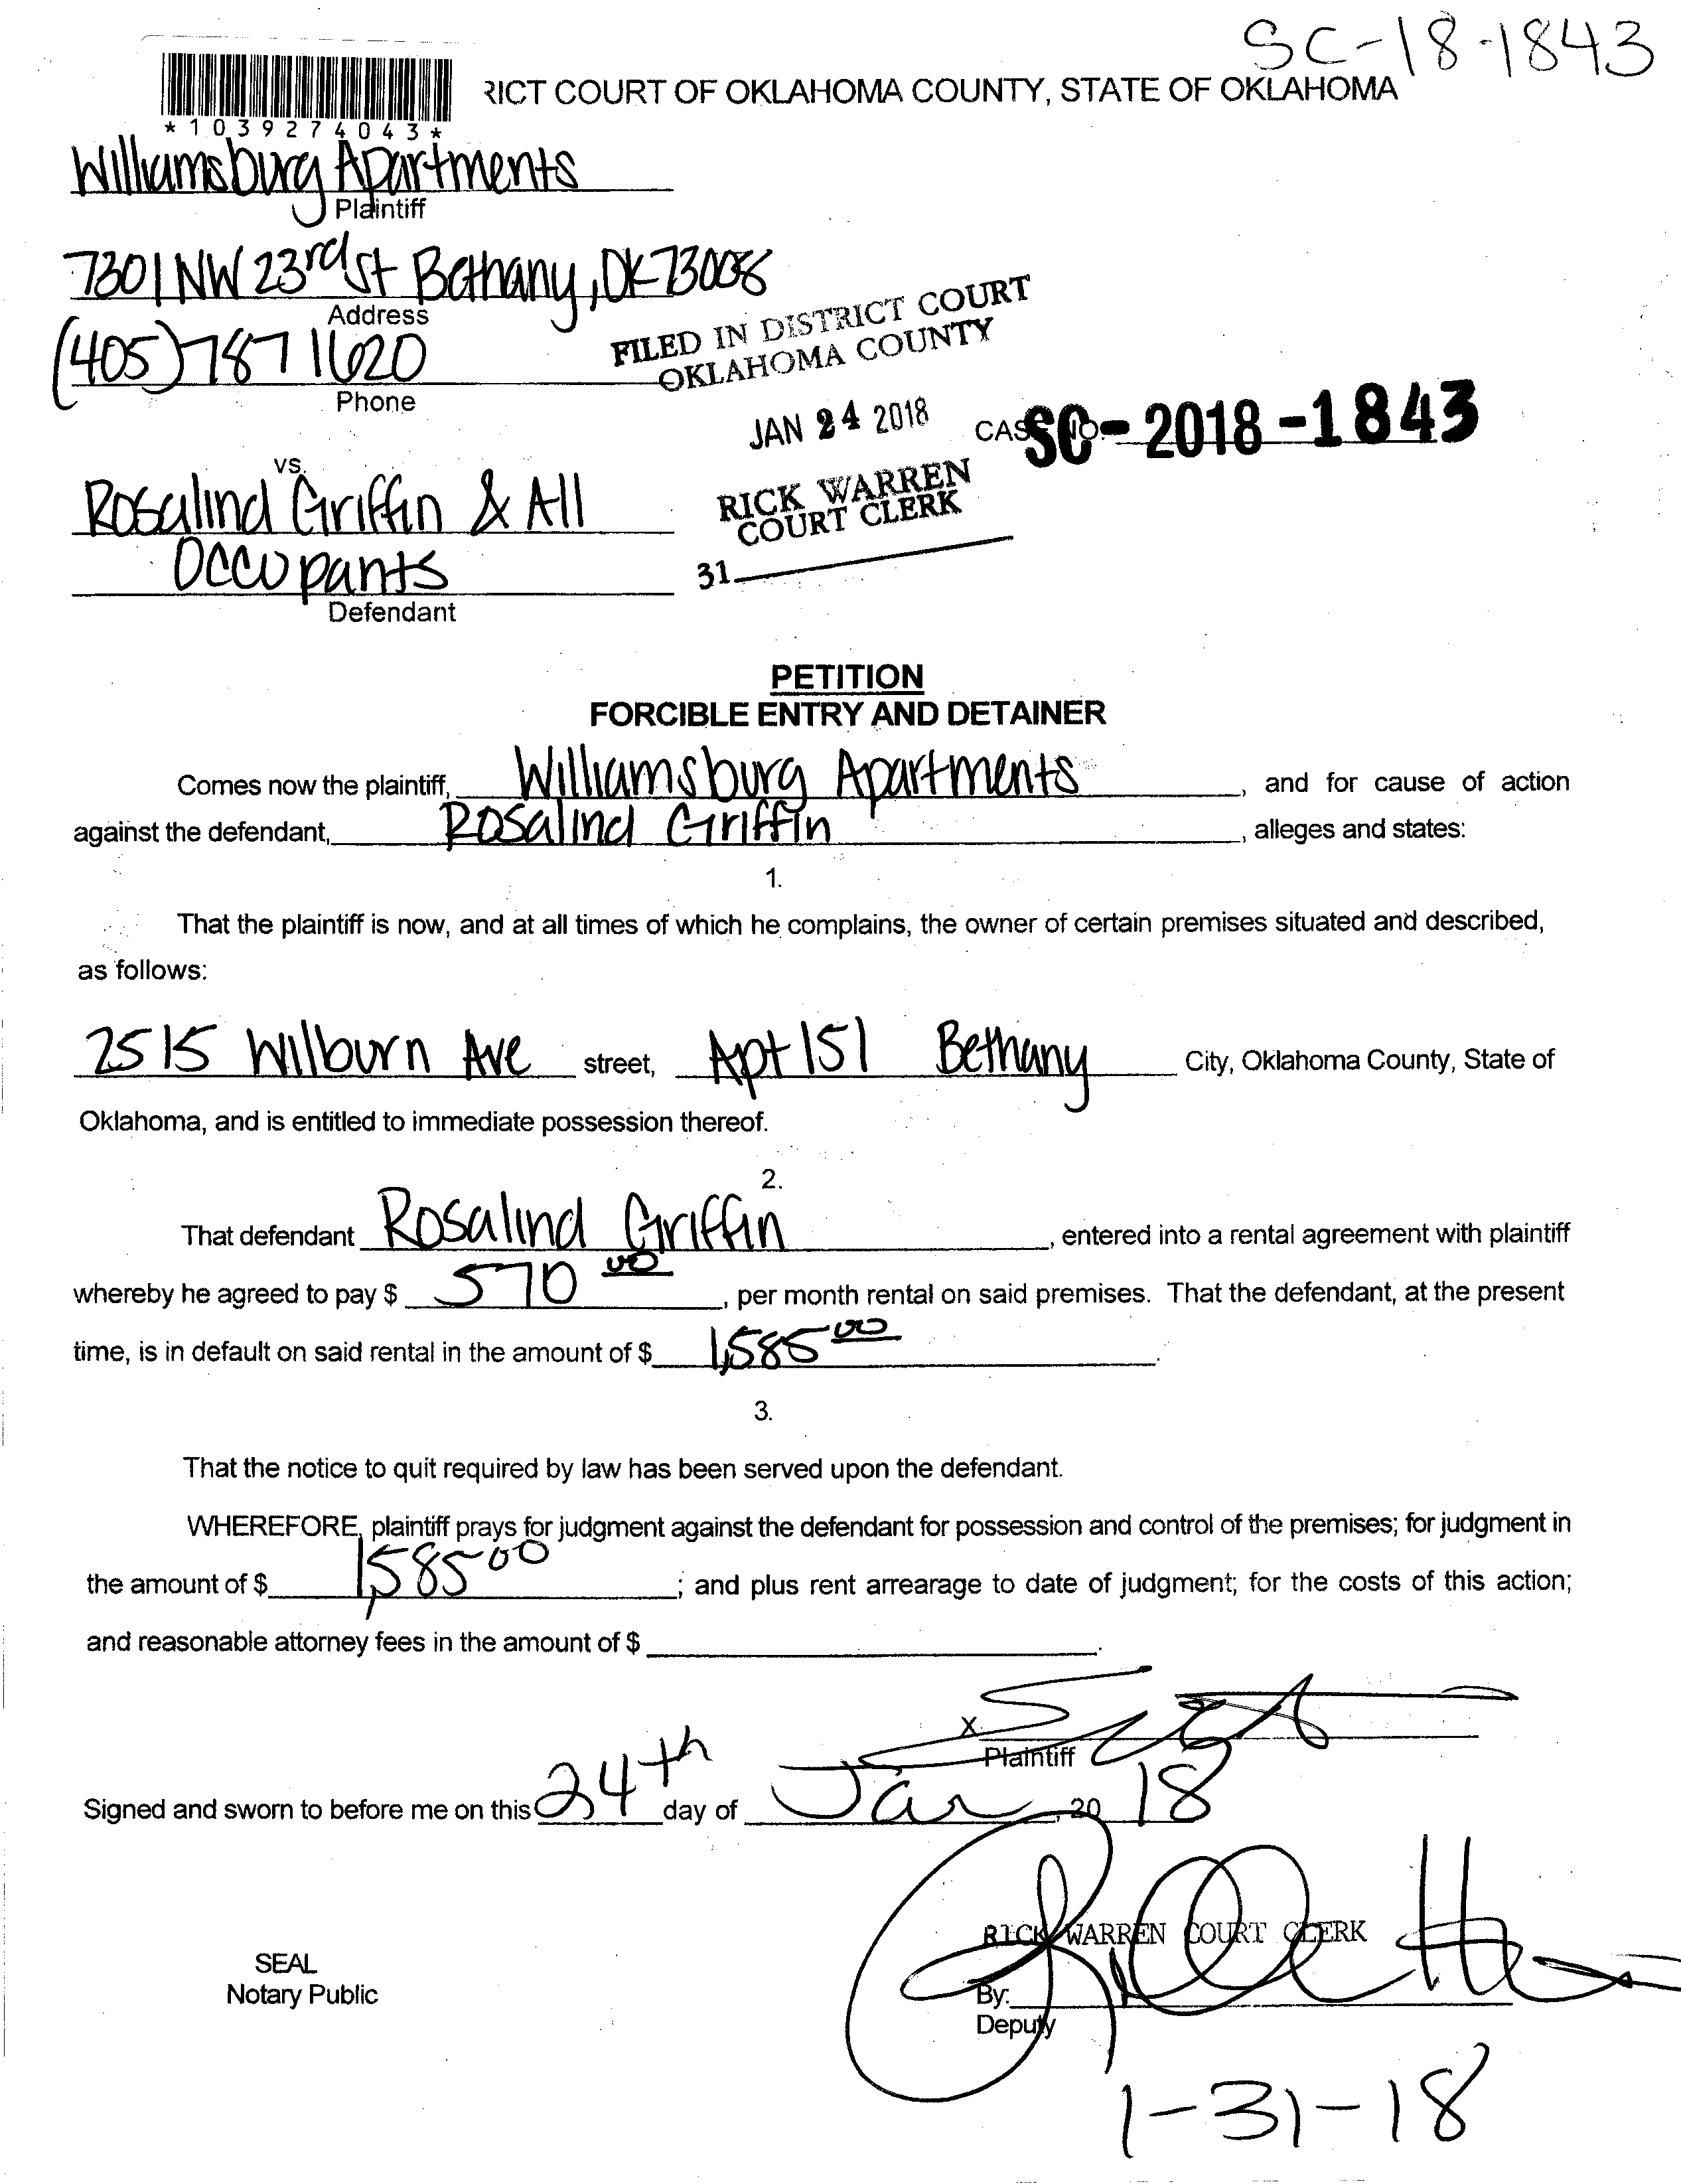 SC-18-1843
RICT COURT OF OKLAHOMA COUNTY, STATE OF OKLAHOMA
*1039274043*
Williamsburg Apartments
Plaintiff
7301 NW 23rd St Bethany, OK 73008
Address
(405) 787 1620
Phone
FILED IN DISTRICT COURT
OKLAHOMA COUNTY
JAN 24 2018
CASE NO. SC-2018-1843
RICK WARREN
COURT CLERK
31
vs.
Rosalind Griffin & All
Occupants
Defendant
PETITION
FORCIBLE ENTRY AND DETAINER
Comes now the plaintiff, Williamsburg Apartments, and for cause of action
against the defendant, Rosalind Griffin, alleges and states:
1.
That the plaintiff is now, and at all times of which he complains, the owner of certain premises situated and described,
as follows:
2515 Wilburn Ave street, Apt 151 Bethany City, Oklahoma County, State of
Oklahoma, and is entitled to immediate possession thereof.
2.
That defendant Rosalind Griffin, entered into a rental agreement with plaintiff
whereby he agreed to pay $ 570 00, per month rental on said premises. That the defendant, at the present
time, is in default on said rental in the amount of $ 1,585 00.
3.
That the notice to quit required by law has been served upon the defendant.
WHEREFORE, plaintiff prays for judgment against the defendant for possession and control of the premises; for judgment in
the amount of $ 1,585 00; and plus rent arrearage to date of judgment; for the costs of this action;
and reasonable attorney fees in the amount of $ .
X
Plaintiff
Signed and sworn to before me on this 24th day of Jan, 20 18
RICK WARREN COURT CLERK
SEAL
Notary Public
By:
Deputy
1-31-18